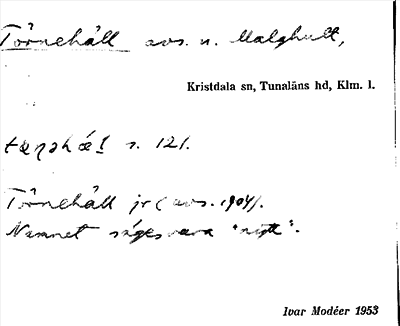 Törnehåll avs. u. Malghult,
Kristdala sn, Tunaläns hd, Klm. l.
tæɳəhå̀l s. 121.
Törnehåll jr (avs. 1904).
Namnet säges vara "nytt".
Ivar Modéer 1953